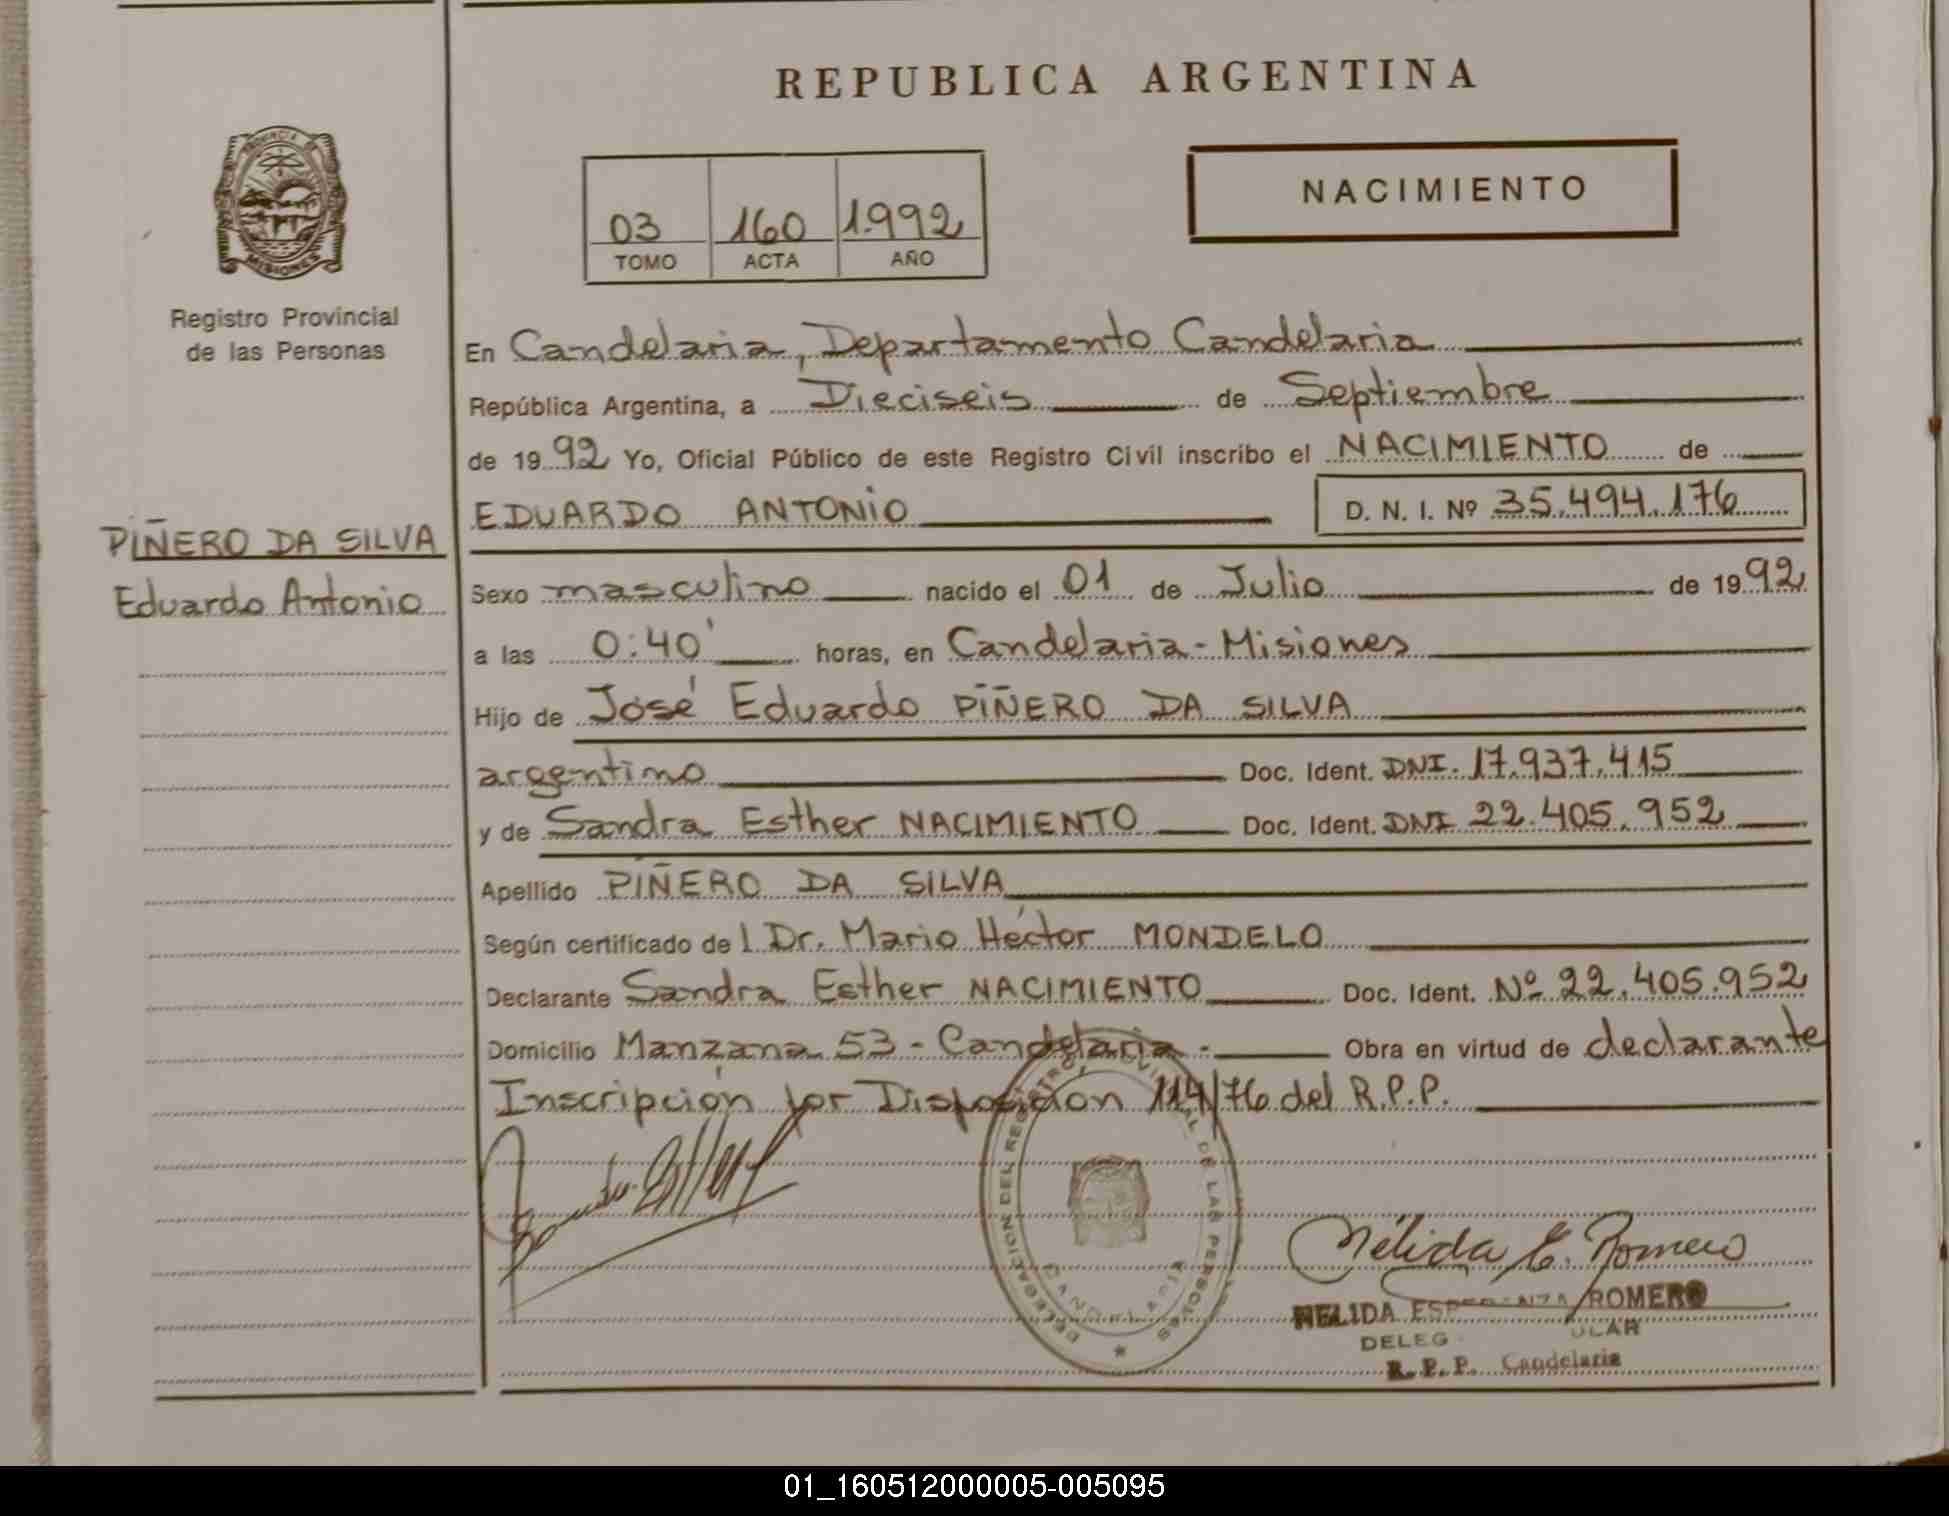 REPUBLICA ARGENTINA
NACIMIENTO
03 160 1.992
TOMO ACTA AÑO
PROVINCIA DE
MISIONES
Registro Provincial
de las Personas
PIÑERO DA SILVA
Eduardo Antonio
En Candelaria, Departamento Candelaria
República Argentina, a Dieciseis de Septiembre
de 1992 Yo, Oficial Público de este Registro Civil inscribo el NACIMIENTO de
EDUARDO ANTONIO D. N. I. Nº 35.494.176
Sexo masculino nacido el 01 de Julio de 1992
a las 0:40' horas, en Candelaria - Misiones
Hijo de José Eduardo PIÑERO DA SILVA
argentino Doc. Ident. DNI. 17.937.415
y de Sandra Esther NACIMIENTO Doc. Ident. DNI 22.405.952
Apellido PIÑERO DA SILVA
Según certificado del Dr. Mario Héctor MONDELO
Declarante Sandra Esther NACIMIENTO Doc. Ident. Nº 22.405.952
Domicilio Manzana 53 - Candelaria - Obra en virtud de declarante
Inscripción por Disposición 114/76 del R.P.P.
DELEGACION DEL REGISTRO PROVINCIAL DE LAS PERSONAS
CANDELARIA
Nélida E. Romero
NELIDA ROMERO
DELEG
R. P. P. Candelaria
01_160512000005-005095